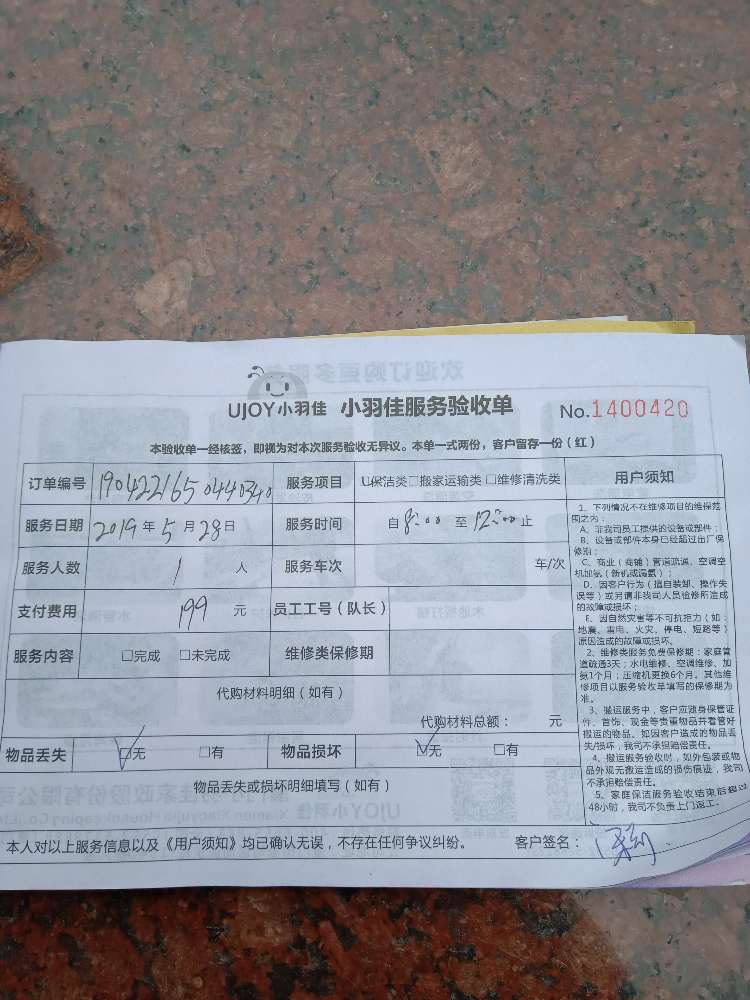 UJOY小羽佳 小羽佳服务验收单 No.1400420
本验收单一经核签，即视为对本次服务验收无异议。本单一式两份，客户留存一份（红）
订单编号 1904221650440340 服务项目 保洁类 □搬家运输类 □维修清洗类
服务日期 2019年5月28日 服务时间 自8:00至12:00止
服务人数 1 人 服务车次 车/次
支付费用 199 元 员工工号（队长）
服务内容 □完成 □未完成 维修类保修期
代购材料明细（如有）
代购材料总额： 元
物品丢失 ☑无 □有 物品损坏 ☑无 □有
物品丢失或损坏明细填写（如有）
本人对以上服务信息以及《用户须知》均已确认无误，不存在任何争议纠纷。 客户签名：
用户须知
1、下列情况不在维修项目的维保范
围之内：
A、非我司员工提供的设备或部件；
B、设备或部件本身已经超过出厂保
修期；
C、商业（商铺）管道疏通、空调空
机加氨（新机或漏氨）；
D、因客户行为（擅自装卸、操作失
误等）或另请非我司人员检修所造成
的故障或损坏；
E、因自然灾害等不可抗拒力（如：
地震、雷电、火灾、停电、短路等）
原因造成的故障或损坏。
2、维修类服务免费保修期：家庭管
道疏通3天；水电维修、空调维修、加
氨1个月；压缩机更换6个月。其他维
修项目以服务验收单填写的保修期为
准。
3、搬运服务中，客户应随身保管证
件、首饰、现金等贵重物品并看管好
搬运的物品。如因客户造成的物品丢
失/损坏，我司不承担赔偿责任。
4、搬运服务验收时，如外包装或物
品外观无搬运造成的损伤痕迹，我司
不承担赔偿责任。
5、家庭保洁服务验收结束后超过
48小时，我司不负责上门返工。